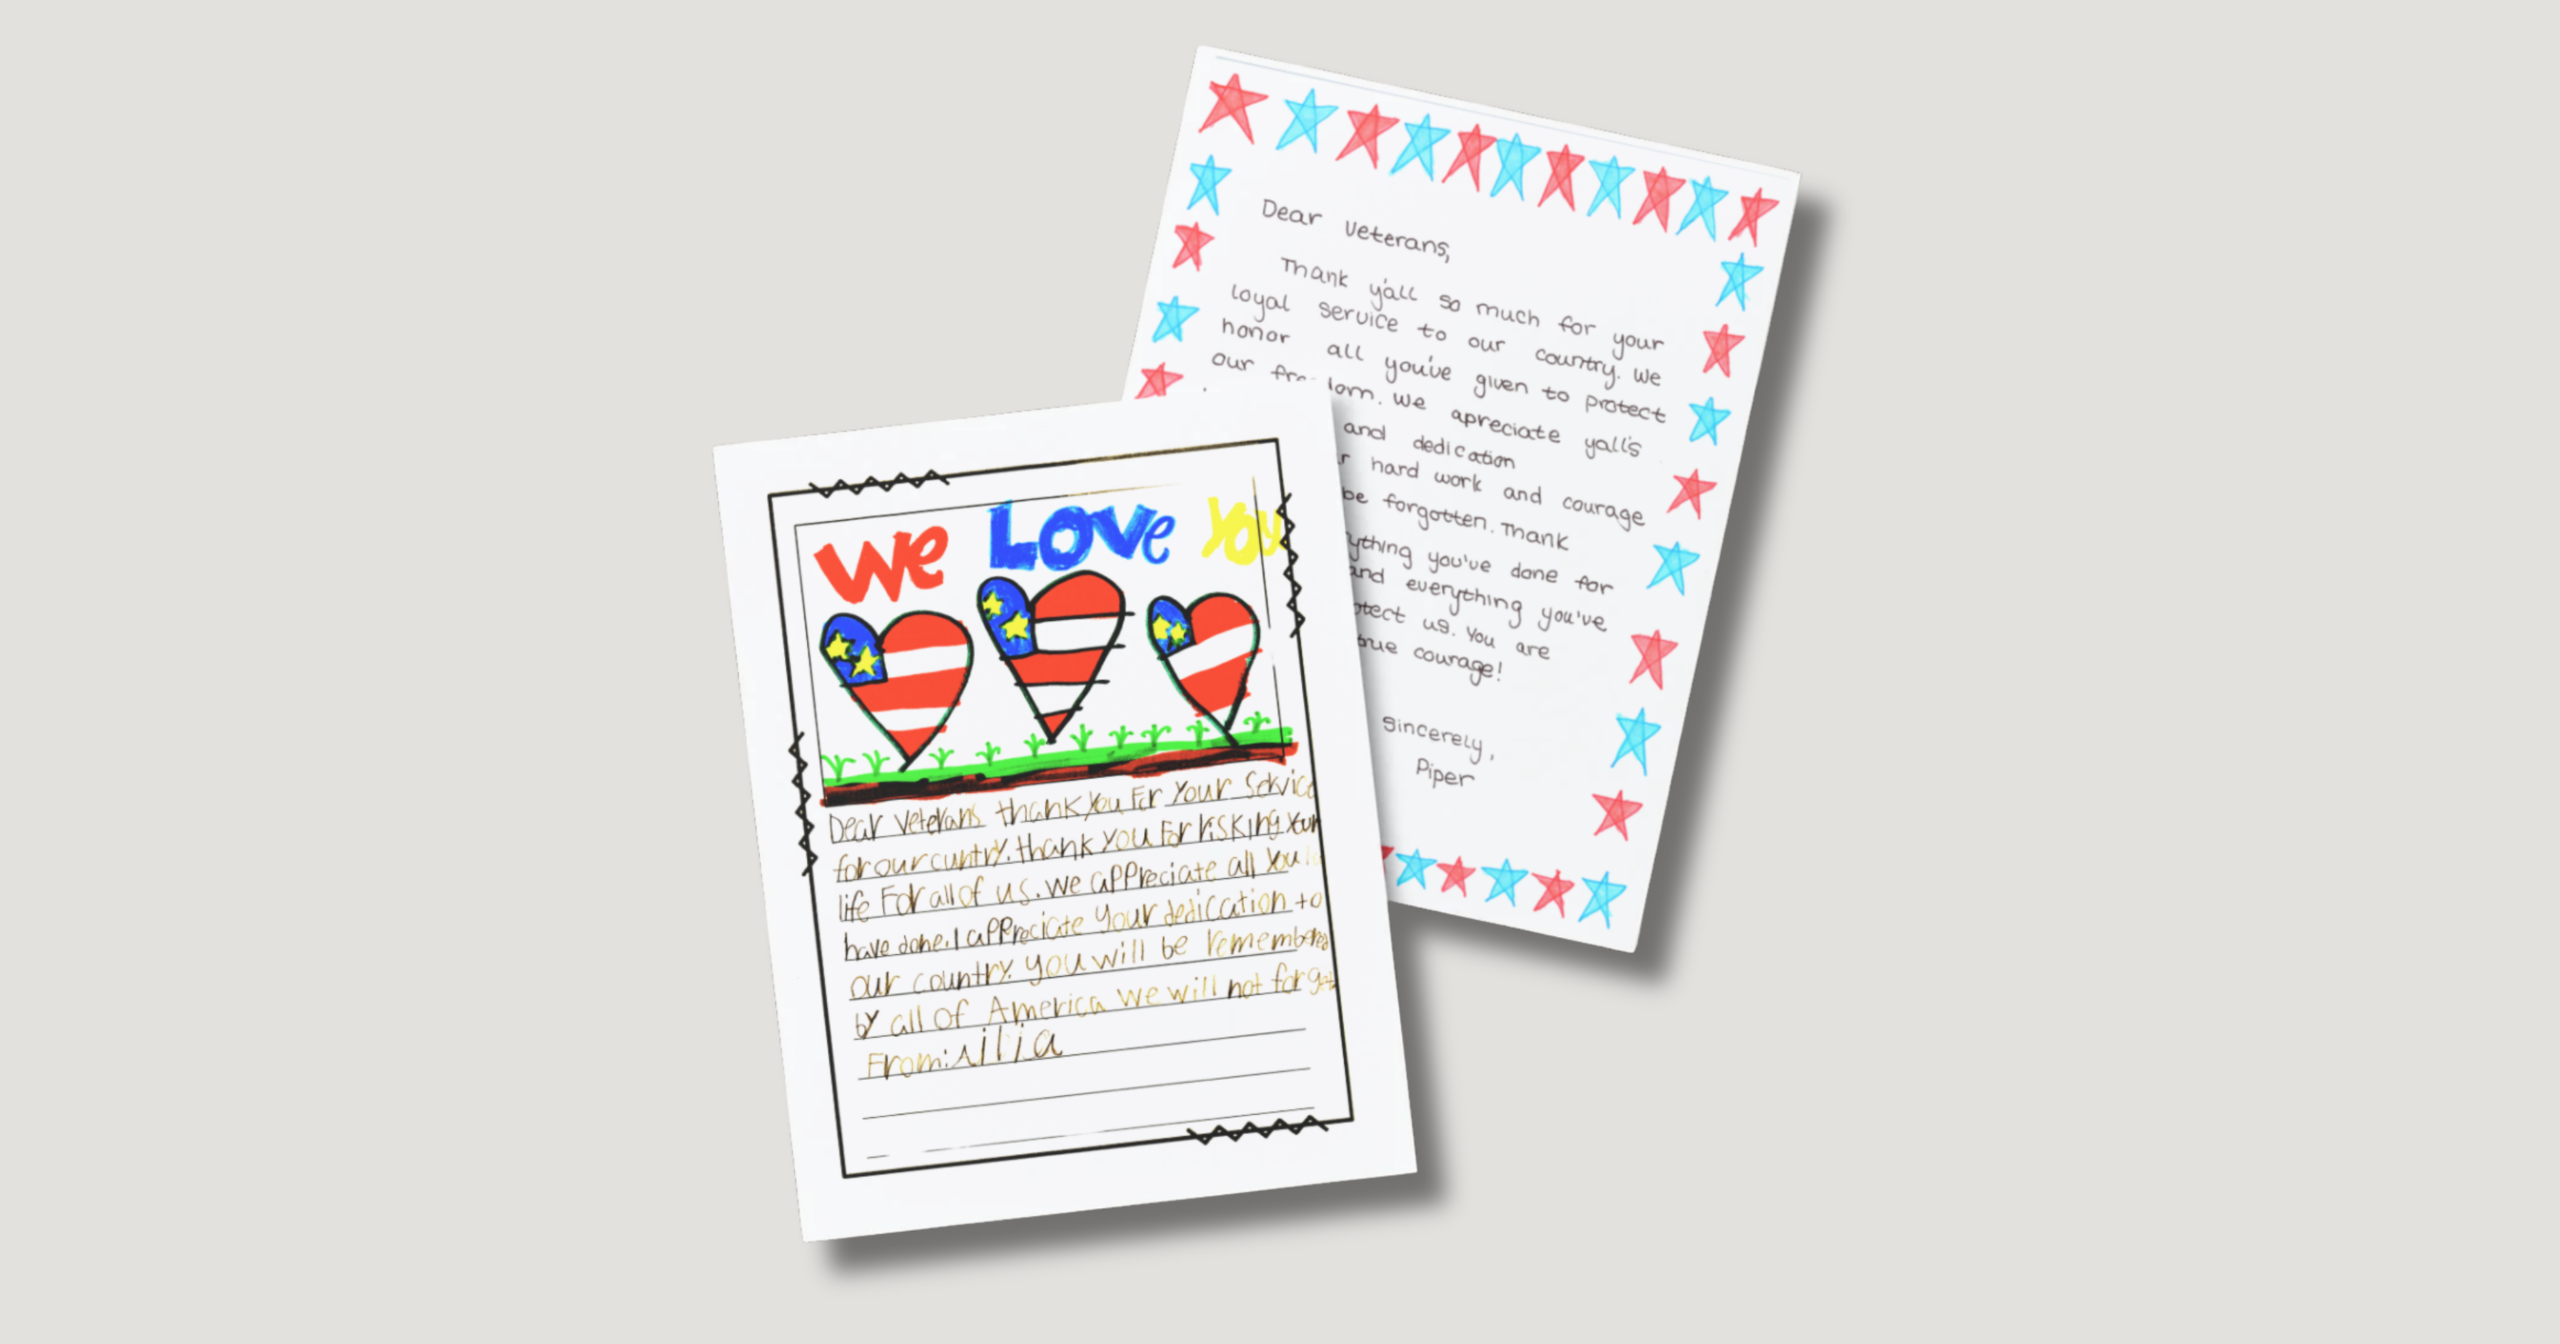 Dear Veterans,
Thank y'all so much for your
loyal service to our country. We
honor all you've given to protect
our We apreciate yall's
and dedication
hard work and courage
be forgotten. Thank
you've done for
and everything you've
us. You are
courage!
Sincerely,
Piper
We Love You
Dear Veterans thank you For Your Service
for our cuntry. thank you For risking your
life For all of us. we appreciate all you
have done. I appreciate your dedication to
our country. you will be remembered
by all of America we will not forget
From: